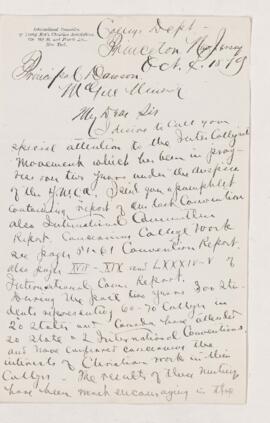 International Committee
of Young Men's Christian Associations
New York.
College Dept.
Princeton New Jersey
Oct. 4. 1879
Principal Dawson.
McGill Univ.
My Dear Sir
I desire to call your
special attention to the Intercollegiate
movement which has been in prog-
ress over two years under the auspices
of the Y.M.C.A. I send you a pamphlet
containing report of our last Convention
also International Committee
Report. Concerning College Work
see pages 51 & 61 Convention Report.
also pages XVII - XIX and LXXXIV-V of
International Com. Report.
During the past two years
students representing 60-70 Colleges in
20 States and Canada have attended
20 State & 2 International Conventions
and have conferred concerning the
interests of Christian work in their
Colleges. The result of these meetings
have been most encouraging in the